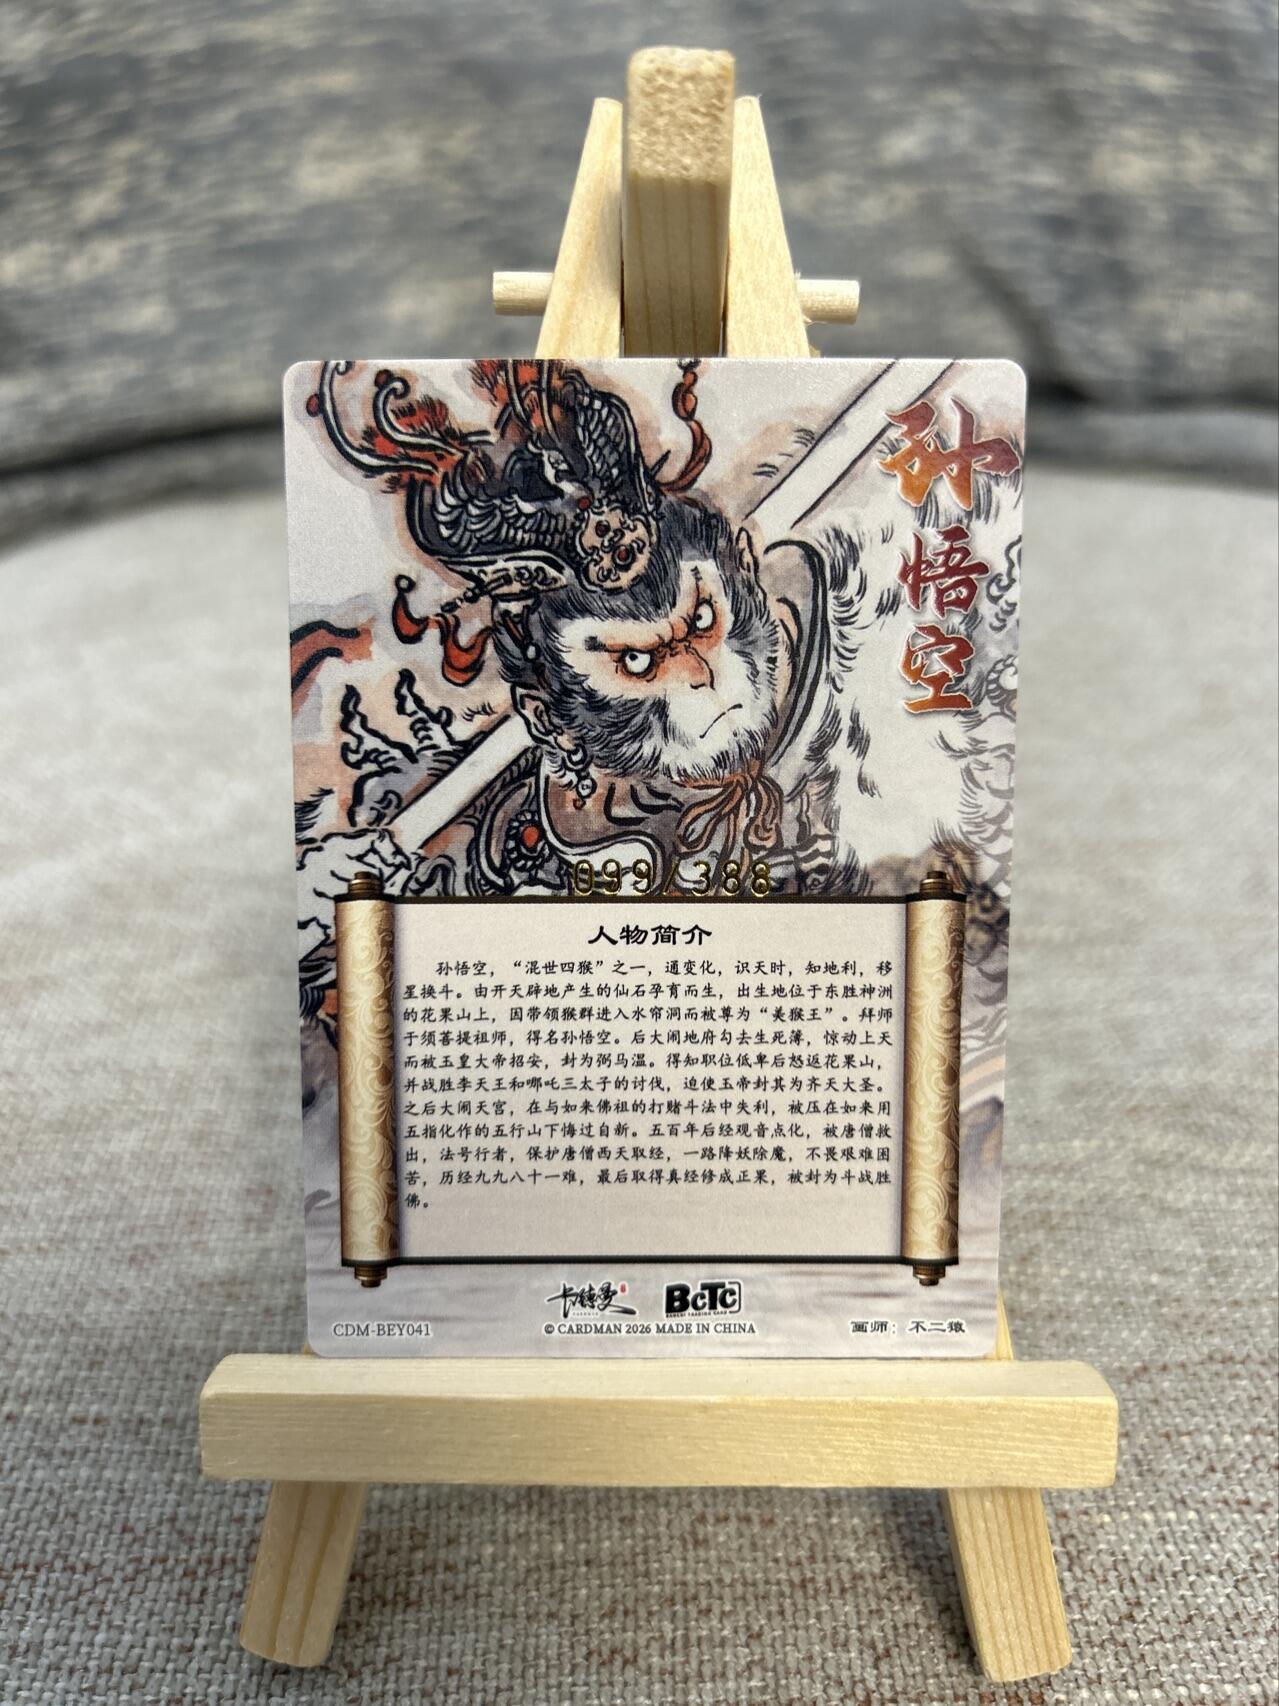 孙悟空
099/388
人物简介
孙悟空，“混世四猴”之一，通变化，识天时，知地利，移
星换斗。由开天辟地产生的仙石孕育而生，出生地位于东胜神洲
的花果山上，因带领猴群进入水帘洞而被尊为“美猴王”。拜师
于须菩提祖师，得名孙悟空。后大闹地府勾去生死簿，惊动上天
而被玉皇大帝招安，封为弼马温。得知职位低卑后怒返花果山，
并战胜李天王和哪吒三太子的讨伐，迫使玉帝封其为齐天大圣。
之后大闹天宫，在与如来佛祖的打赌斗法中失利，被压在如来用
五指化作的五行山下悔过自新。五百年后经观音点化，被唐僧救
出，法号行者，保护唐僧西天取经，一路降妖除魔，不畏艰难困
苦，历经九九八十一难，最后取得真经修成正果，被封为斗战胜
佛。
卡德曼 BCTC
CDM-BEY041
© CARDMAN 2026 MADE IN CHINA
画师：不二猿